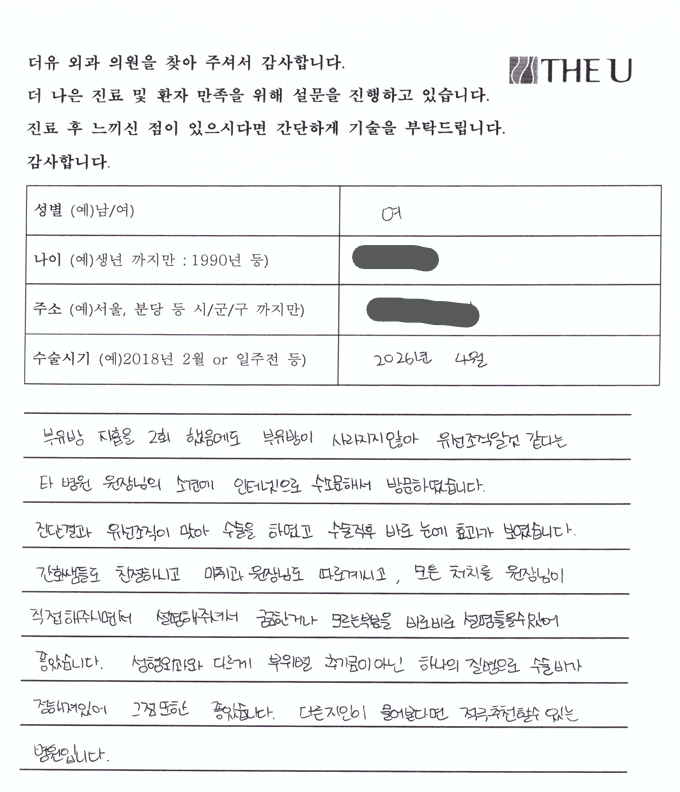 더유 외과 의원을 찾아 주셔서 감사합니다.
THE U
더 나은 진료 및 환자 만족을 위해 설문을 진행하고 있습니다.
진료 후 느끼신 점이 있으시다면 간단하게 기술을 부탁드립니다.
감사합니다.
성별 (예)남/여) 여
나이 (예)생년 까지만 : 1990년 등)
주소 (예)서울, 분당 등 시/군/구 까지만)
수술시기 (예)2018년 2월 or 일주전 등) 2026년 4월
부유방 지흡을 2회 했음에도 부유방이 사라지지않아 유선조직일것 같다는
타 병원 원장님의 소견에 인터넷으로 수소문해서 방문하였습니다.
진단결과 유선조직이 맞아 수술을 하였고 수술직후 바로 눈에 효과가 보였습니다.
간호쌤들도 친절하시고 마취과 원장님도 따로계시고, 모든 처치를 원장님이
직접해주시면서 설명해주셔서 궁금한거나 모르는부분을 바로바로 설명들을수있어
좋았습니다. 성형외과와 다르게 부위별 추가금이아닌 하나의 질병으로 수술비가
정해져있어 그점또한 좋았습니다. 다른지인이 물어본다면 적극추천할수 있는
병원입니다.